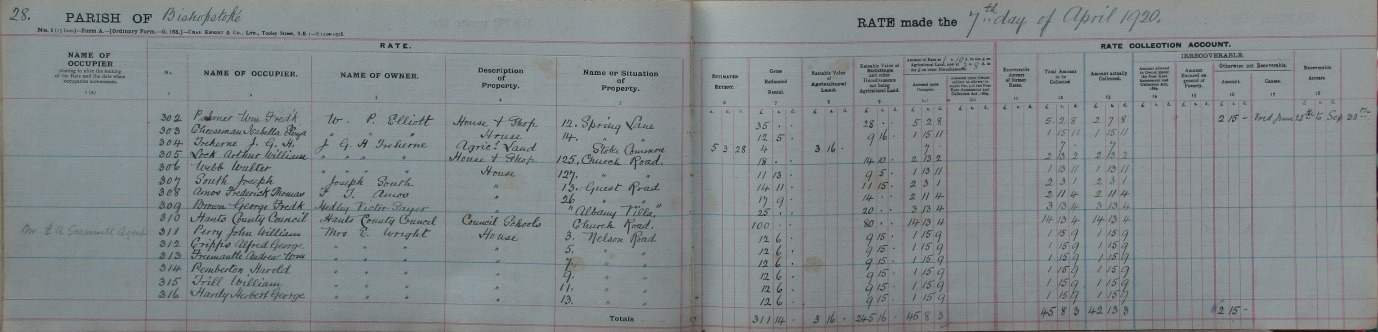 28. PARISH OF Bishopstoke RATE made the 7th day of April 1920.
RATE. RATE COLLECTION ACCOUNT.
IRRECOVERABLE.
NAME OF OCCUPIER No. NAME OF OCCUPIER. NAME OF OWNER. Description of Property. Name or Situation of Property. ESTIMATED EXTENT. Gross Estimated Rental. Rateable Value of Agricultural Land. Rateable Value of Buildings and other Hereditaments not being Agricultural Land. Total Amount to be Collected. Amount actually Collected. Amount. Cause.
302 Palmer Wm Fredk W. P. Elliott House & Shop 12. Spring Lane 35 . . 28 . . 5 2 8 5 2 8 2 7 8 2 15 - Void June 25th to Sep 30th
303 Cheeseman Isabella " " " House 14. " " 12 5 . 9 16 . 1 15 11 1 15 11 1 15 11
304 Treherne J. G. H. J G H Treherne Agricl Land Stoke Common 5 3 28 4 3 16 . 7 . 7 . 7 .
305 Lock Arthur William " " " House & Shop 125. Church Road 18 . . 14 10 . 2 13 2 2 13 2 2 13 2
306 Webb Walter " " " House 127. " " 11 13 . 9 5 . 1 13 11 1 13 11 1 13 11
307 South Joseph Joseph South " 13. Guest Road 14 11 . 11 15 . 2 3 1 2 3 1 2 3 1
308 Amos Frederick Thomas F. T. Amos " 26 " " 17 9 . 14 . . 2 11 4 2 11 4 2 11 4
309 Brown George Fredk Medley Victor Sayer " "Albany Villa," 25 . . 20 . . 3 13 4 3 13 4 3 13 4
310 Hants County Council Hants County Council Council Schools Church Road. 100 . . 80 . . 14 13 4 14 13 4 14 13 4
311 Perry John William Mrs E. Wright House 3. Nelson Road 12 6 . 9 15 . 1 15 9 1 15 9 1 15 9
312 Cripps Alfred George " " " " 5. " " 12 6 . 9 15 . 1 15 9 1 15 9 1 15 9
313 Fremantle Andrew Wm " " " " 7. " " 12 6 . 9 15 . 1 15 9 1 15 9 1 15 9
314 Pemberton Harold " " " " 9. " " 12 6 . 9 15 . 1 15 9 1 15 9 1 15 9
315 Trill William " " " " 11. " " 12 6 . 9 15 . 1 15 9 1 15 9 1 15 9
316 Hardy Herbert George " " " " 13. " " 12 6 . 9 15 . 1 15 9 1 15 9 1 15 9
Totals 311 14 . 3 16 . 245 16 . 45 8 3 45 8 3 42 13 3 2 15 -